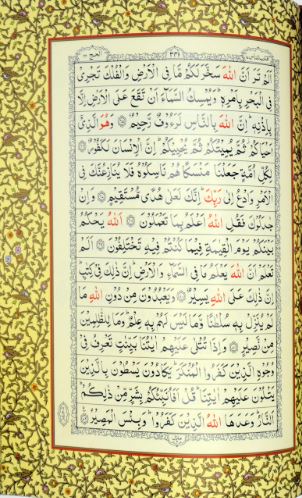 اَلَمْ تَرَ اَنَّ اللّٰهَ سَخَّرَ لَكُمْ مَا فِي الْاَرْضِ وَالْفُلْكَ تَجْرٖي
فِي الْبَحْرِ بِاَمْرِهٖ وَيُمْسِكُ السَّمَٓاءَ اَنْ تَقَعَ عَلَى الْاَرْضِ اِلَّا
بِاِذْنِهٖ اِنَّ اللّٰهَ بِالنَّاسِ لَرَؤُ۫فٌ رَحٖيمٌ ۝ وَهُوَ الَّذٖٓي
اَحْيَاكُمْ ثُمَّ يُمٖيتُكُمْ ثُمَّ يُحْيٖيكُمْ اِنَّ الْاِنْسَانَ لَكَفُورٌ ۝
لِكُلِّ اُمَّةٍ جَعَلْنَا مَنْسَكًا هُمْ نَاسِكُوهُ فَلَا يُنَازِعُنَّكَ فِي
الْاَمْرِ وَادْعُ اِلٰى رَبِّكَ اِنَّكَ لَعَلٰى هُدًى مُسْتَقٖيمٍ ۝ وَاِنْ
جَادَلُوكَ فَقُلِ اللّٰهُ اَعْلَمُ بِمَا تَعْمَلُونَ ۝ اَللّٰهُ يَحْكُمُ
بَيْنَكُمْ يَوْمَ الْقِيٰمَةِ فٖيمَا كُنْتُمْ فٖيهِ تَخْتَلِفُونَ ۝ اَلَمْ
تَعْلَمْ اَنَّ اللّٰهَ يَعْلَمُ مَا فِي السَّمَٓاءِ وَالْاَرْضِ اِنَّ ذٰلِكَ فٖي كِتَابٍ
اِنَّ ذٰلِكَ عَلَى اللّٰهِ يَسٖيرٌ ۝ وَيَعْبُدُونَ مِنْ دُونِ اللّٰهِ مَا
لَمْ يُنَزِّلْ بِهٖ سُلْطَانًا وَمَا لَيْسَ لَهُمْ بِهٖ عِلْمٌ وَمَا لِلظَّالِمٖينَ
مِنْ نَصٖيرٍ ۝ وَاِذَا تُتْلٰى عَلَيْهِمْ اٰيَاتُنَا بَيِّنَاتٍ تَعْرِفُ فٖي
وُجُوهِ الَّذٖينَ كَفَرُوا الْمُنْكَرَ يَكَادُونَ يَسْطُونَ بِالَّذٖينَ
يَتْلُونَ عَلَيْهِمْ اٰيَاتِنَا قُلْ اَفَاُنَبِّئُكُمْ بِشَرٍّ مِنْ ذٰلِكُمْ
اَلنَّارُ وَعَدَهَا اللّٰهُ الَّذٖينَ كَفَرُوا وَبِئْسَ الْمَصٖيرُ ۝